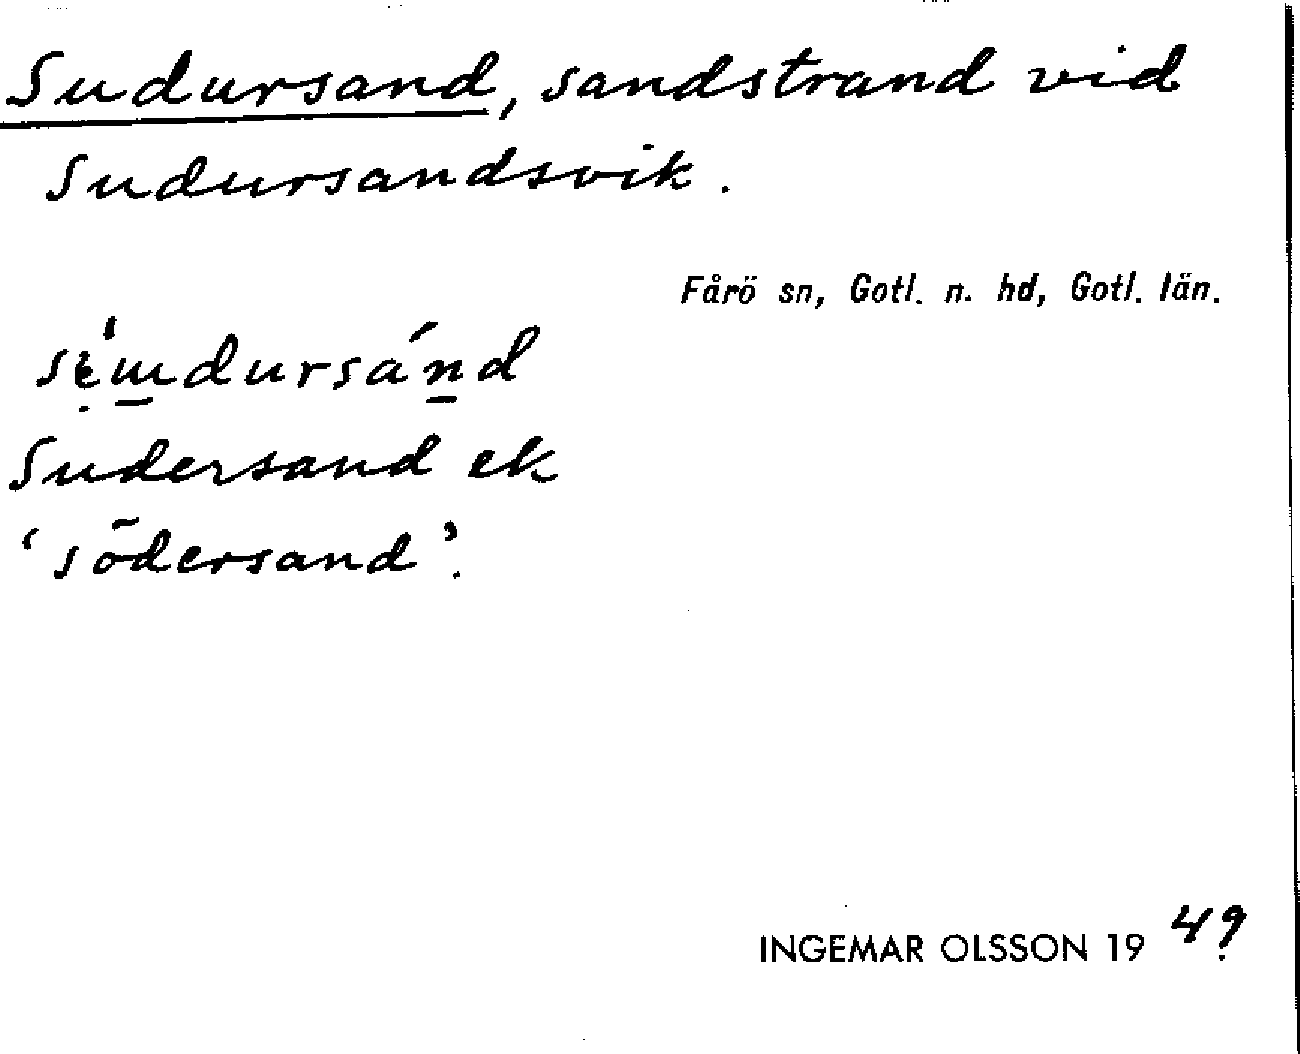 Sudursand, sandstrand vid
Sudursandsvik.
Fårö sn, Gotl. n. hd, Gotl. län.
Sudersand ek
‘södersand’.
INGEMAR OLSSON 1949.